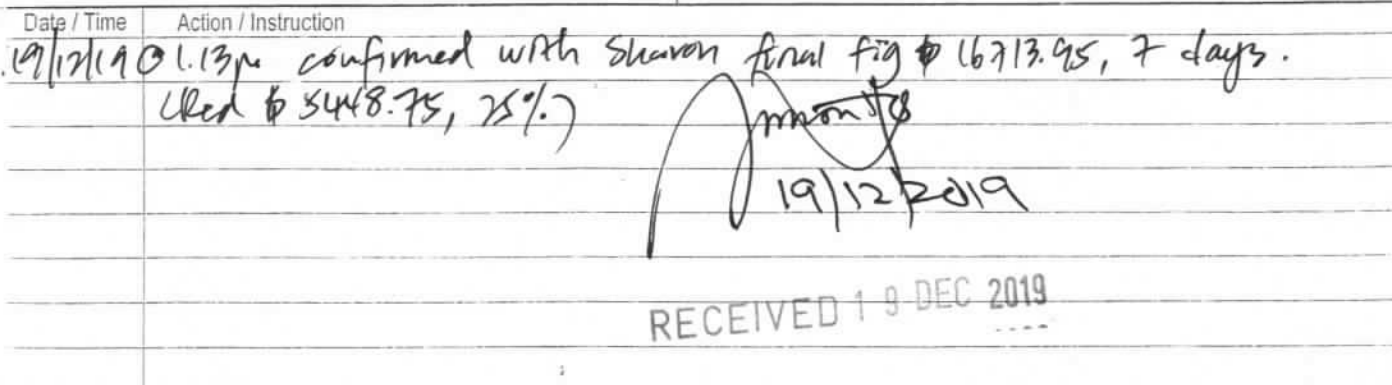 Date / Time Action / Instruction
19/12/19 @ 1.13pm confirmed with Sharon final fig $ 16713.95, 7 days.
(Red $ 5448.75, 25%)
19/12/2019
RECEIVED 19 DEC 2019